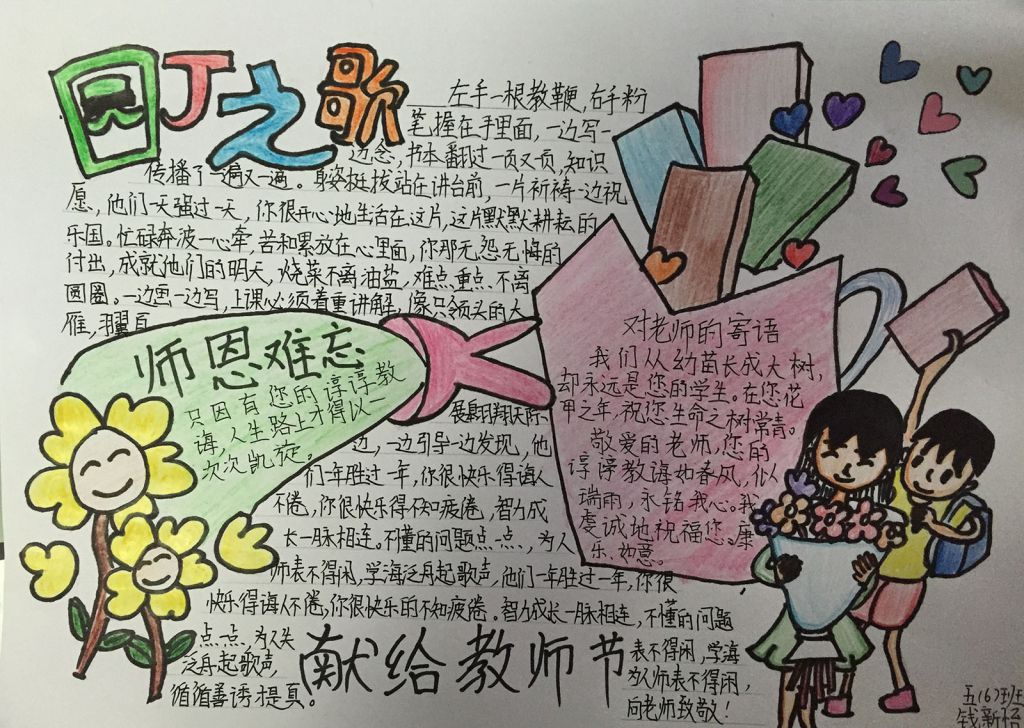 园丁之歌
左手一根教鞭,右手粉
笔,握在手里面,一边写一
边念,书本翻过一页又一页,知识
传播了一遍又一遍。身姿挺拔站在讲台前,一片祈祷一边祝
愿,他们一天强过一天,你很开心地生活在这片,这片默默耕耘的
乐园。忙碌奔波一心牵,苦和累放在心里面,你那无怨无悔的
付出,成就他们的明天,烧菜不离油盐,难点、重点、不离
圆圈。一边画一边写,上课必须着重讲解,像只领头的大
雁,
师恩难忘
只因有您的谆谆教
诲,人生路上才得以一
次次凯旋。
展翅翱翔天际
边,一边引导一边发现,他
们一年胜过一年,你很快乐得诲人
不倦,你很快乐得不知疲倦,智力成
长一脉相连。不懂的问题点一点、为人
师表不得闲,学海泛舟起歌声,他们一年胜过一年,你很
快乐得诲人不倦,你很快乐的不知疲倦。智力成长一脉相连,不懂的问题
点一点、为人
泛舟起歌声,
循循善诱才是真。
表不得闲,学海
为人师表不得闲,
向老师致敬!
对老师的寄语
我们从幼苗长成大树,
却永远是您的学生。在您花
甲之年,祝您生命之树常青。
敬爱的老师,您的
谆谆教诲如春风,似
瑞雨,永铭我心。我
虔诚地祝福您。康
乐、如意。
献给教师节
五(6)班
钱新